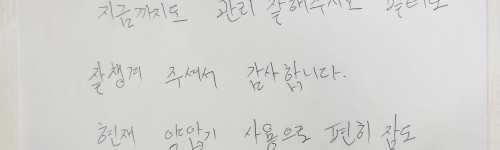 지금까지도 관리 잘해주시고 필터도
잘챙겨 주셔서 감사합니다.
현재 양압기 사용으로 편히 잠도